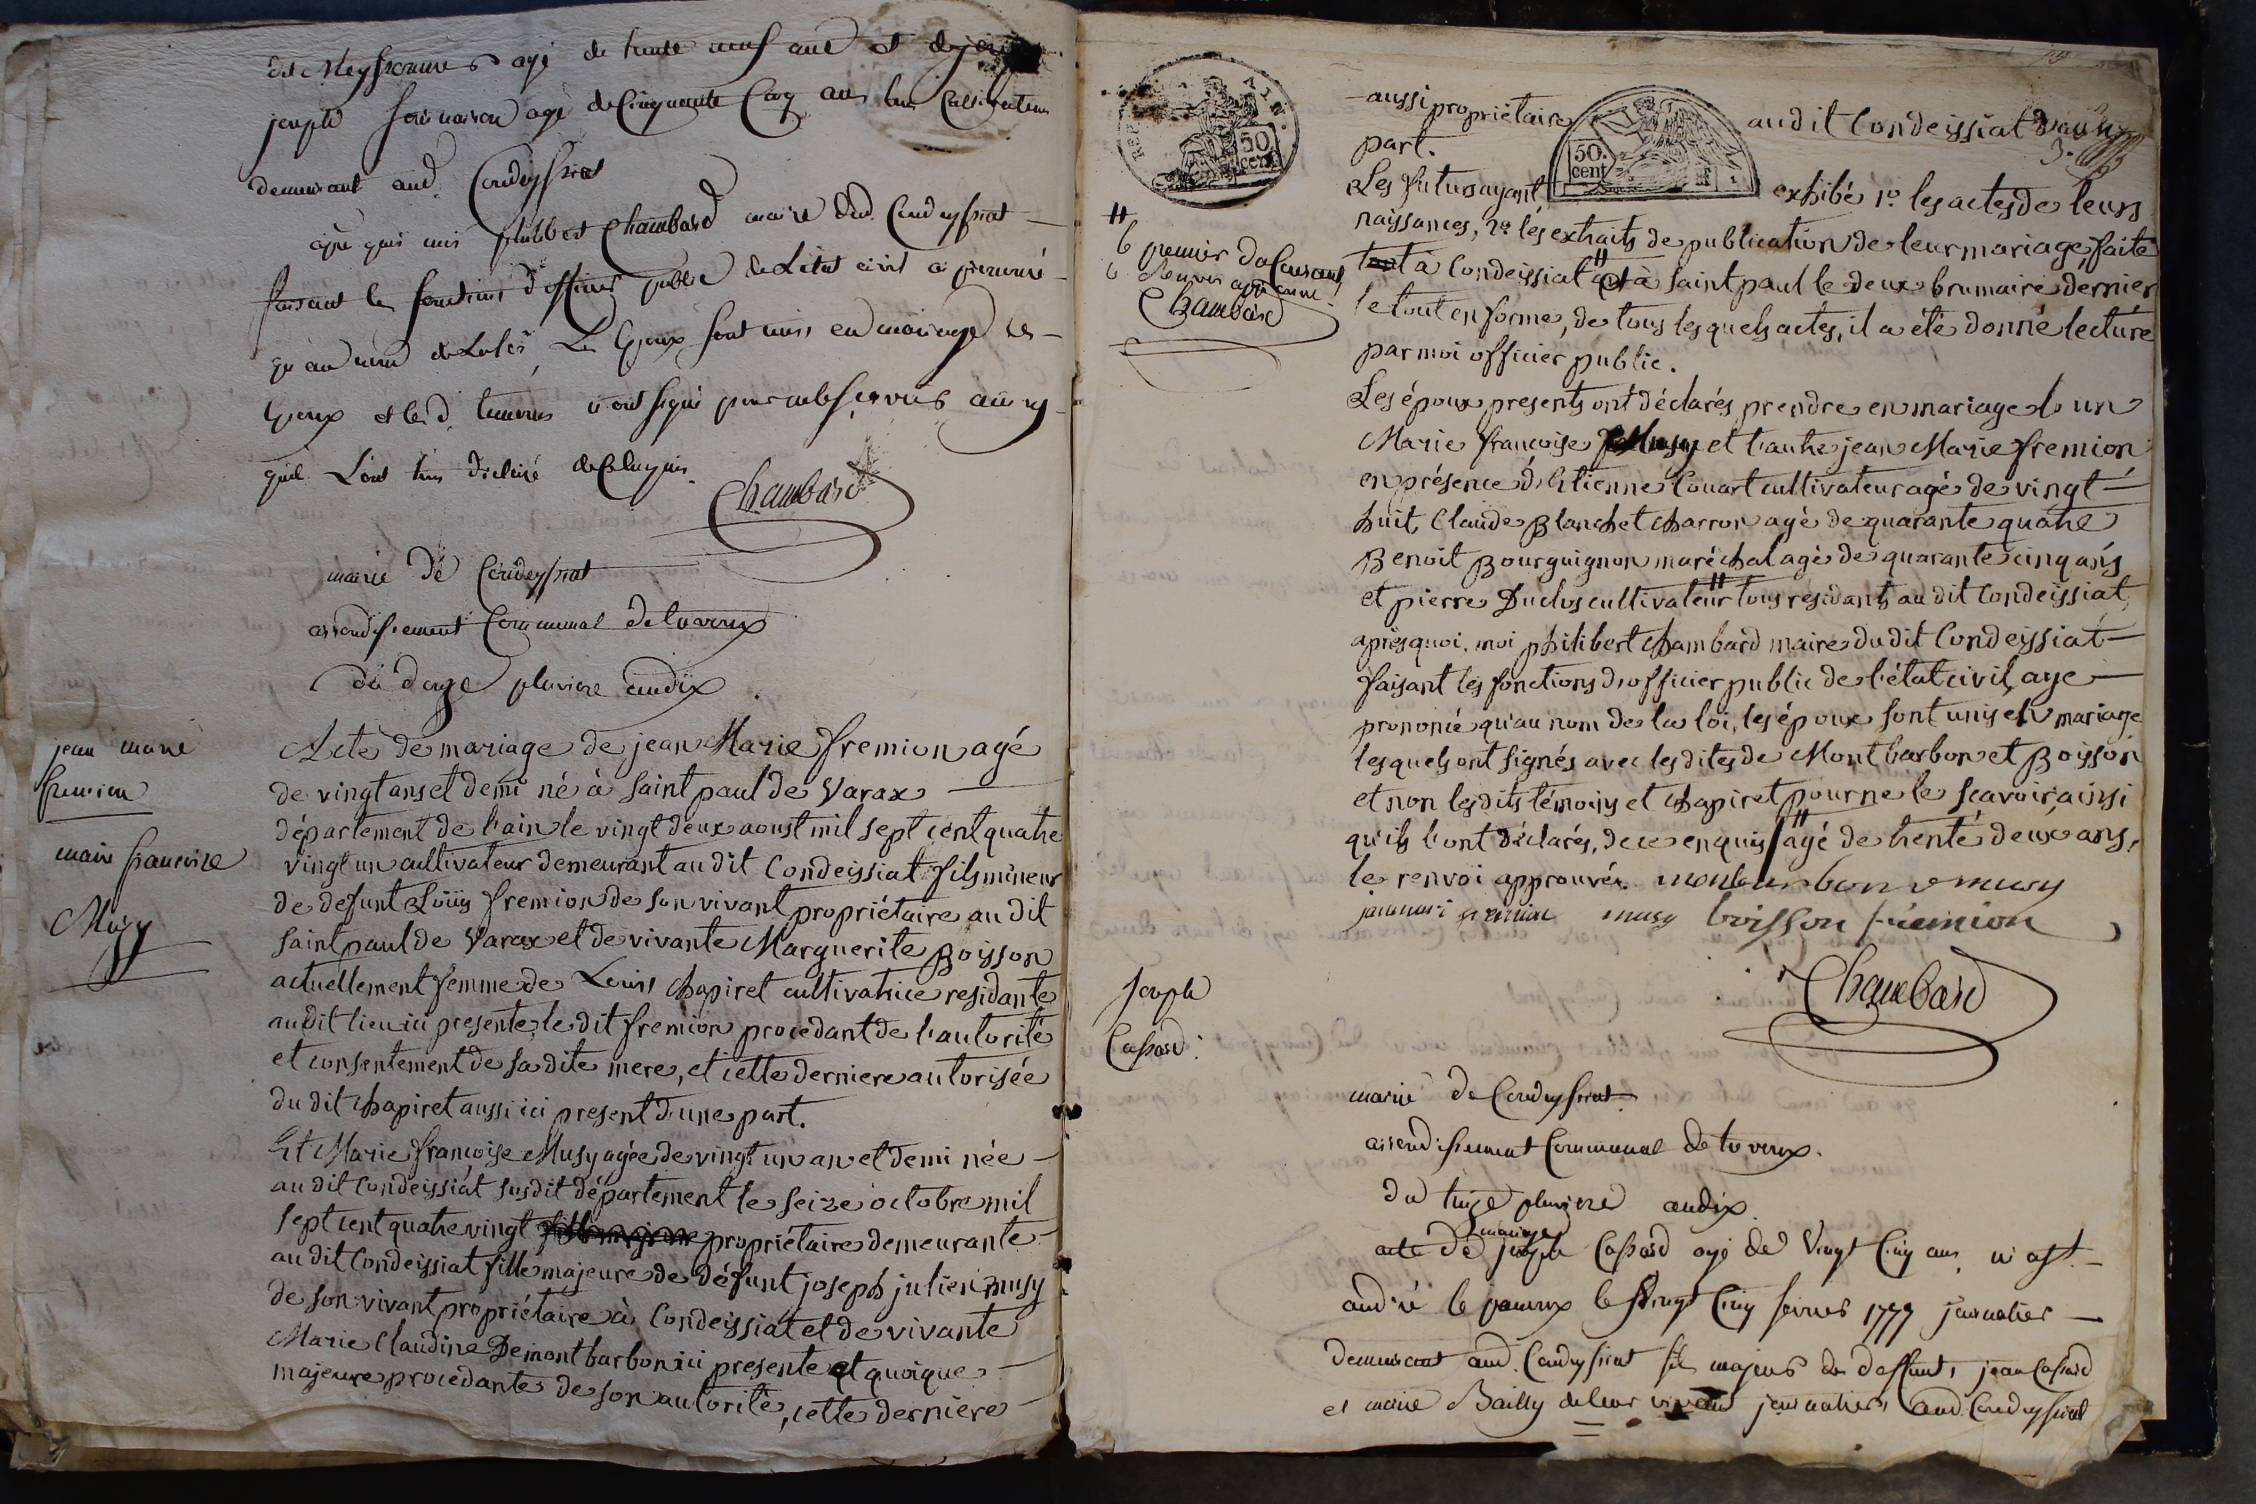 agé de trente neuf ans et
joseph agé de Cinquante Cinq ans
demeurant aud. Condeyssiat
apres quoi moi philibert Chambard maire dud. Condeyssiat
faisant les fonctions d'officier public de Letat civil a prononcé
qu'au nom de La loi, Les Epoux sont unis en mariage Les
Epoux et les d. temoins n'ont signé pour ne le sçavoir ainsy
qu'il L'ont tous déclaré de ce enquis.
Chambard
mairie de Condeyssiat
arrondissement Communal de trevoux
du douze pluviose an dix
jean marie
fremion
marie francoise
Musy
Acte de mariage de jean Marie fremion agé
de vingt ans et demi né à saint paul de Varax
département de l'ain le vingt deux aoust mil sept cent quatre
vingt un cultivateur demeurant au dit Condeissiat fils mineur
de defunt Loüis fremion de son vivant propriétaire au dit
saint paul de Varax et de vivante Marguerite Boisson
actuellement femme de Louis Chapiret cultivatrice residante
au dit lieu ici presente, le dit fremion procedant de l'autorité
et consentement de sa dite mere, et cette derniere autorisée
du dit Chapiret aussi ici present d'une part.
Et Marie françoise Musy agée de vingt un an et demi née
au dit Condeissiat susdit département le seize octobre mil
sept cent quatre vingt propriétaire demeurante
au dit Condeissiat fille majeure de défunt joseph julien musy
de son vivant propriétaire à Condeissiat et de vivante
Marie Claudine Demontbarbon ici presente et quoique
majeure procedante de son autorité, cette derniere
AIN.
50
cent
50.
cent
aussi propriétaire au dit Condeissiat d'autre
part.
Les futurs ayant exhibé 1º. les actes de leurs
naissances, 2º. les extraits de publication de leur mariage faite
tant à Condeissiat et à saint paul le deux brumaire dernier
le tout en forme, de tous les quels actes, il a été donné lecture
par moi officier public.
premier du Courant
renvoi approuvé
Chambard
Les époux presents ont déclarés prendre en mariage l'un
Marie françoise Musy et l'autre jean Marie fremion
en présence d'Etienne Couart cultivateur agé de vingt
huit, Claude Blanchet charron agé de quarante quatre
Benoit Bourguignon maréchal agé de quarante cinq ans
et pierre Duclos cultivateur tous résidants au dit Condeissiat,
après quoi, moi philibert Chambard maire du dit Condeissiat
faisant les fonctions d'officier public de l'état civil, aye
prononcé qu'au nom de la loi, les époux sont unis en mariage
les quels ont signés avec les dites de Montbarbon et Boisson
et non les dits témoins et Chapiret pour ne le scavoir ainsi
qu'ils l'ont déclarés, de ce enquis agé de trente deux ans,
le renvoi approuvé. montbarbon musy
musy boisson fremion
Chambard
joseph
Cassard
mairie de Condeyssiat
arrondissement Communal de trevoux.
du treize pluviose an dix
mariage
acte de joseph Cassard agé de Vingt Cinq ans, né a st.
andré le panoux le Vingt Cinq fevrier 1777 journalier
demeurant aud. Condeyssiat fils majeur de deffunt, jean Cassard
et marie Bailly de leur vivant journaliers aud. Condeyssiat